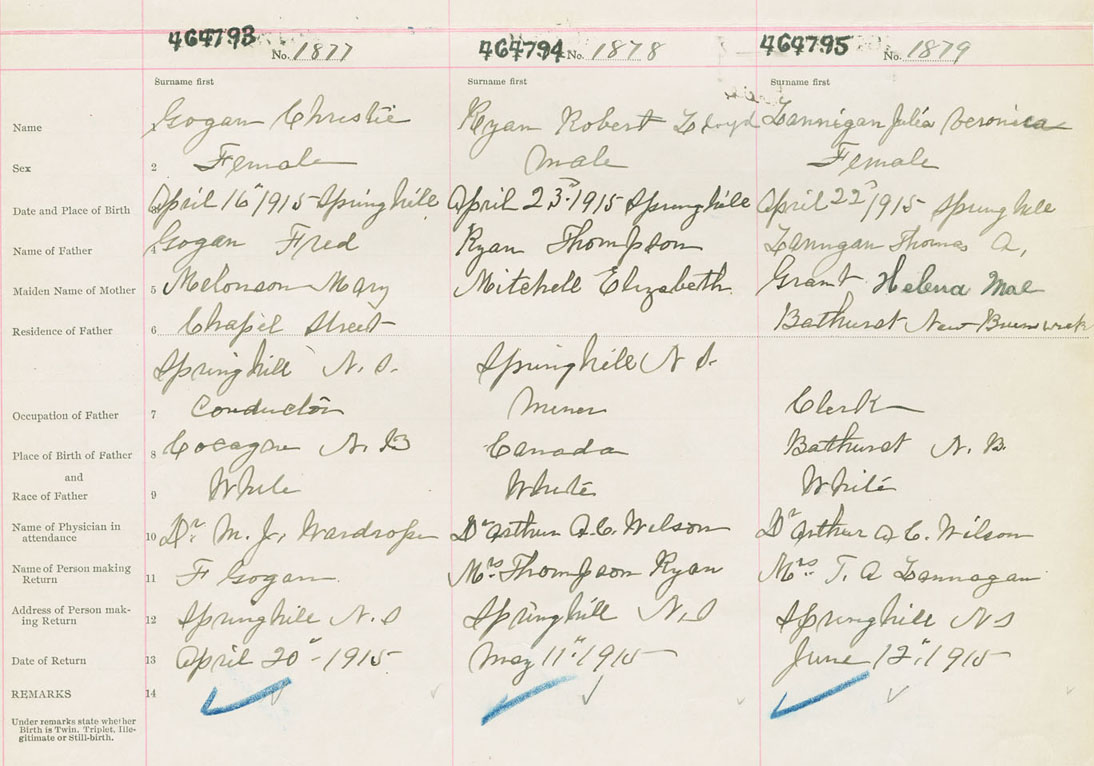 464793 No. 1877 464794 No. 1878 464795 No. 1879
Surname first Surname first Surname first
Name Gogan Christie Ryan Robert Lloyd Lannigan Julia Veronica
Sex 2 Female Male Female
Date and Place of Birth 3 April 16" 1915 - Springhill April 23rd 1915 Springhill April 22nd 1915 Springhill
Name of Father 4 Gogan Fred Ryan Thompson Lannigan Thomas A,
Maiden Name of Mother 5 Melonson Mary Mitchell Elizabeth Grant Helena Mae
Residence of Father 6 Chapel Street Bathurst New Brunswick
Springhill N. S. Springhill N S.
Occupation of Father 7 Conductor Miner Clerk
Place of Birth of Father 8 Cocagne N. B Canada Bathurst N. B.
and
Race of Father 9 White White White
Name of Physician in
attendance 10 Dr M. J. Wardrope Dr Arthur A. C. Wilson Dr Arthur A C. Wilson
Name of Person making
Return 11 F Gogan. Mrs. Thompson Ryan Mrs. T. A Lannagan
Address of Person mak-
ing Return 12 Springhill N. S Springhill N. S Springhill N S
Date of Return 13 April 20" - 1915 May 11" 1915 June 12", 1915
REMARKS 14
Under remarks state whether
Birth is Twin, Triplet, Ille-
gitimate or Still-birth.